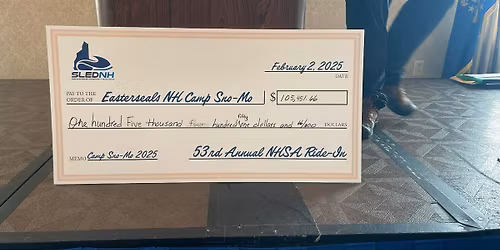 SLEDNH
February 2, 2025
DATE
PAY TO THE
ORDER OF Easterseals NH Camp Sno-Mo $ 105,451.66
One hundred Five thousand four hundred fifty one dollars and 66/100 DOLLARS
MEMO Camp Sno-Mo 2025 53rd Annual NHSA Ride-In